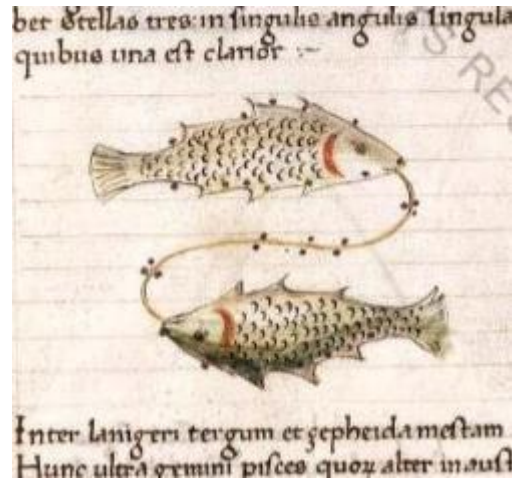 bet Stellas tres in singulis angulis singula
quibus una est clarior :~
TS RES
Inter lanigeri tergum et çepheida mestam
Hunc ultra gemini pisces quoꝝ alter in aust